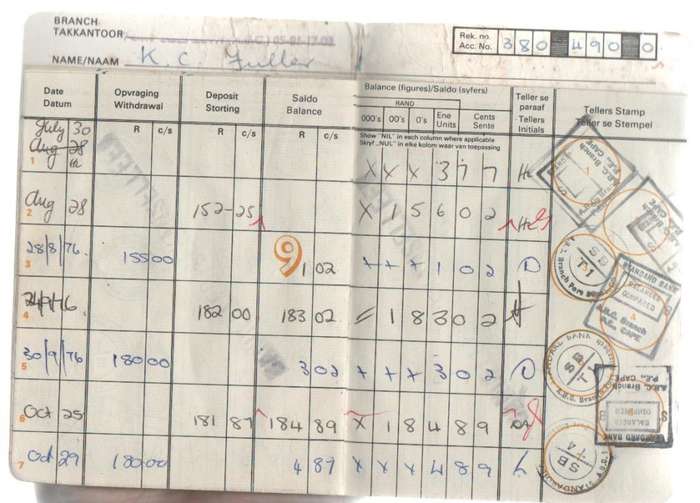 BRANCH
TAKKANTOOR/
NAME/NAAM K. C. Fuller
Rek. no. Acc. No. 380 490 0
Date Datum Opvraging Withdrawal Deposit Storting Saldo Balance Balance (figures)/Saldo (syfers) Teller se paraaf Tellers Initials Tellers Stamp Teller se Stempel
RAND
000's 00's 0's Ene Units Cents Sente
R c/s R c/s R c/s
Show "NIL" in each column where applicable
Skryf „NUL" in elke kolom waar van toepassing
July 30
1 Aug 28 X X X 3 7 7
2 Aug 28 152-25 X 1 5 6 0 2
3 28/8/76 155 00 9 1 02 X X X 1 0 2
4 182 00 183 02 1 8 3 0 2
5 30/9/76 180 00 3 02 X X X 3 0 2
6 Oct 25 181 87 184 89 X 1 8 4 8 9
7 Oct 29 180 00 4 87 X X X 4 8 9
STANDARD BANK
BALANCED
COMPARED
A.B.C. Branch
P.E., CAPE
SB
T.1
SB
SB
T.4
A.B.C. Branch
P.E., CAPE
BALANCED
STANDARD BANK